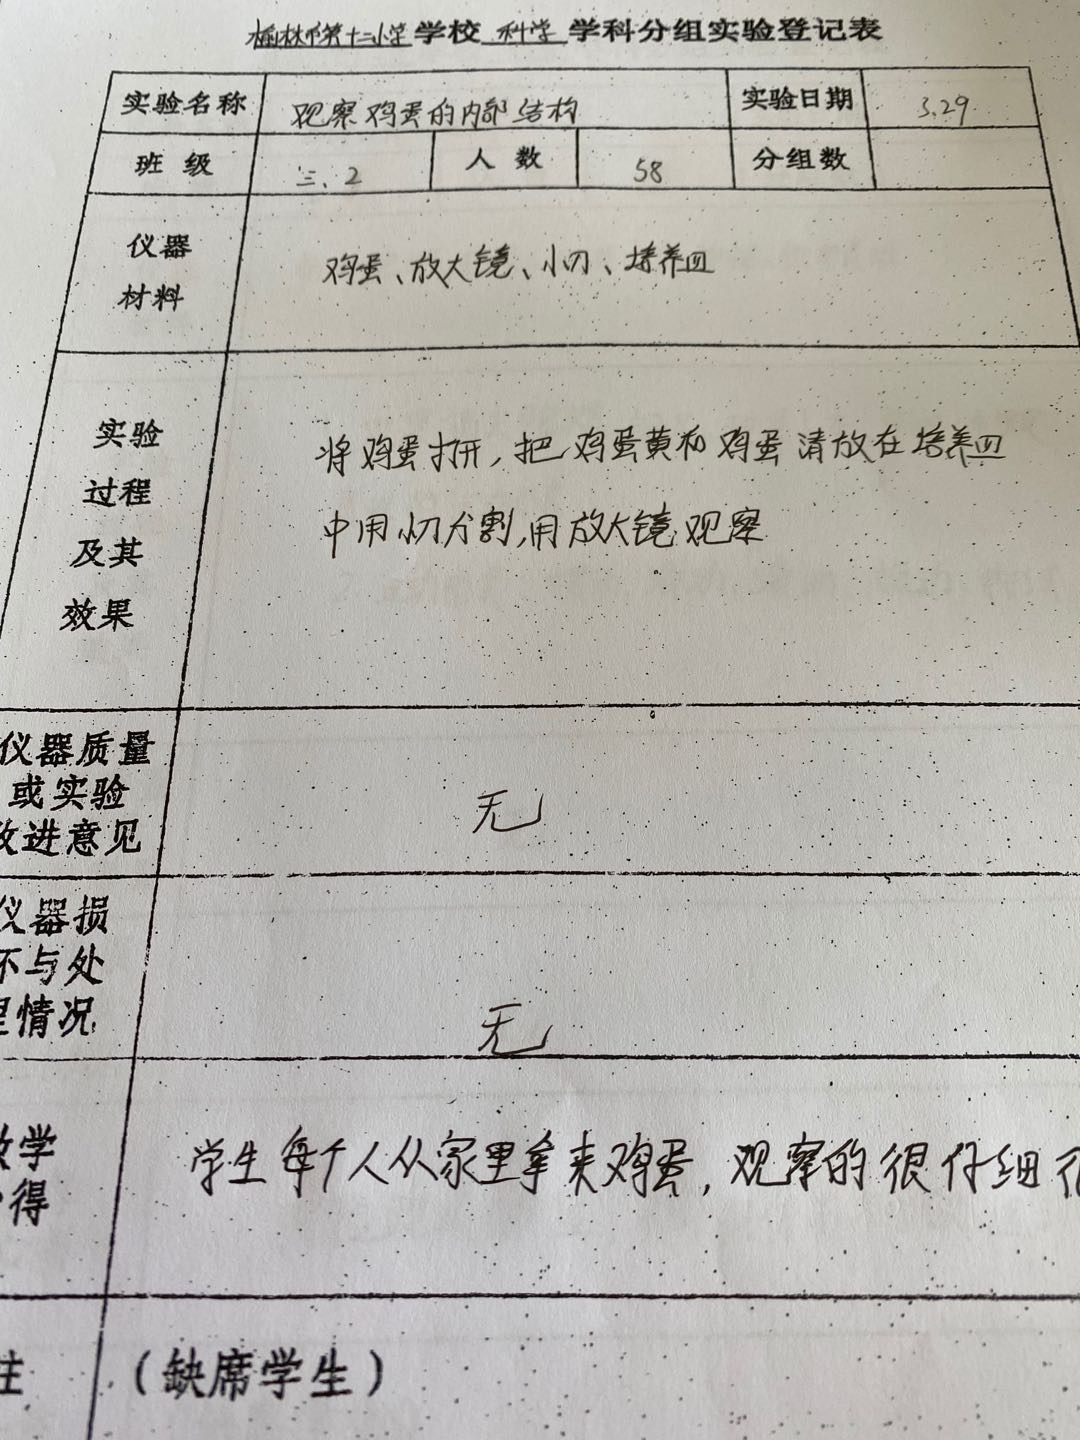 榆林市第十二小学学校 科学 学科分组实验登记表
实验名称 观察鸡蛋的内部结构 实验日期 3.29
班 级 三、2 人 数 58 分组数
仪器
材料
鸡蛋、放大镜、小刀、培养皿
实验
过程
及其
效果
将鸡蛋打开，把鸡蛋黄和鸡蛋清放在培养皿
中用小刀分割，用放大镜观察
仪器质量
或实验
改进意见
无
仪器损
坏与处
理情况
无
教学
心得
学生每个人从家里拿来鸡蛋，观察的很仔细
注
（缺席学生）